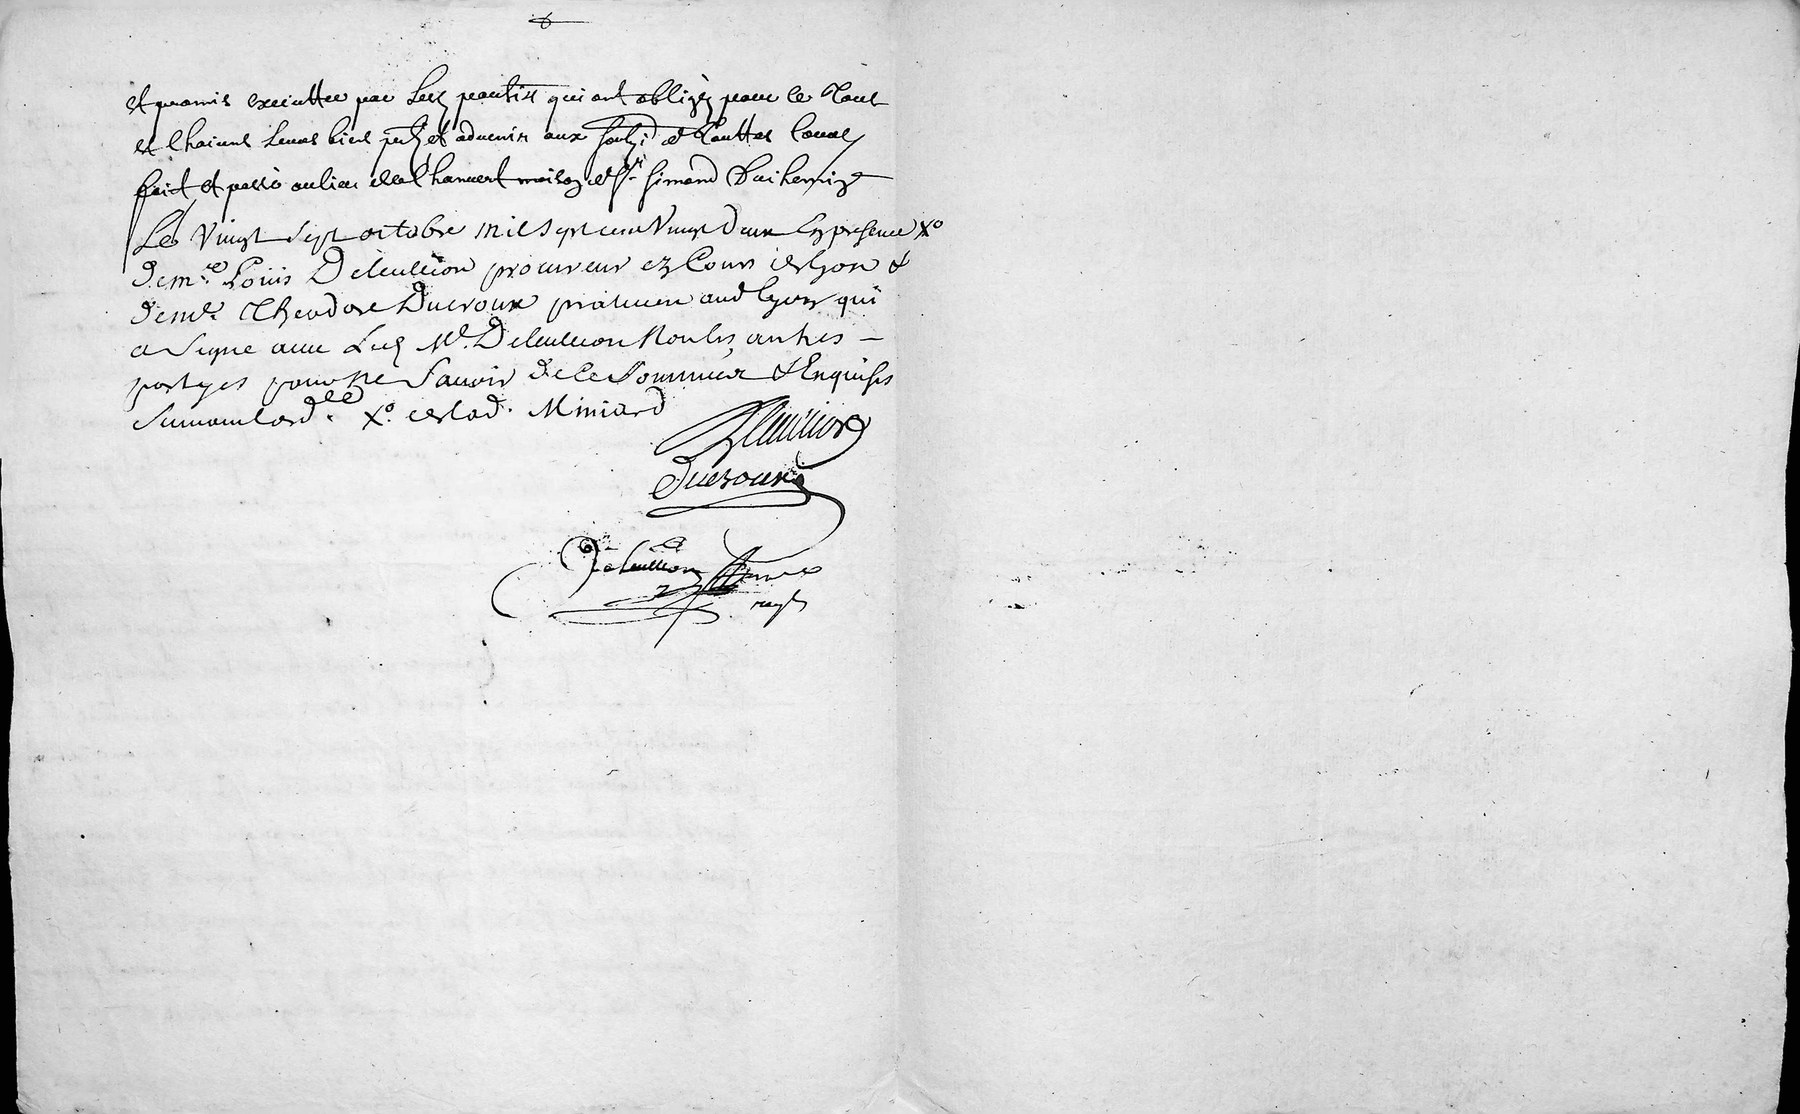 et promis executter par lesd parties qui ont obligéz pour le tout
et chacuns leurs biens et advenir aux de touttes Cours
fait et passé au lieu de maison de Sr Simond
Le Vingt Sept octobre mil Sept cent Vingt Deux En presence Xo
De me Louis Deleullion procureur ez Cours de lyon &
De me Theodore Ducroux praticien aud lyon qui
a Signé avec Led Me Deleullion Non les autres
partyes pour ne Scavoir de ce Sommées & Enquises
Xo de lad. Miniard
Deleullion
Ducroux
Deleullion